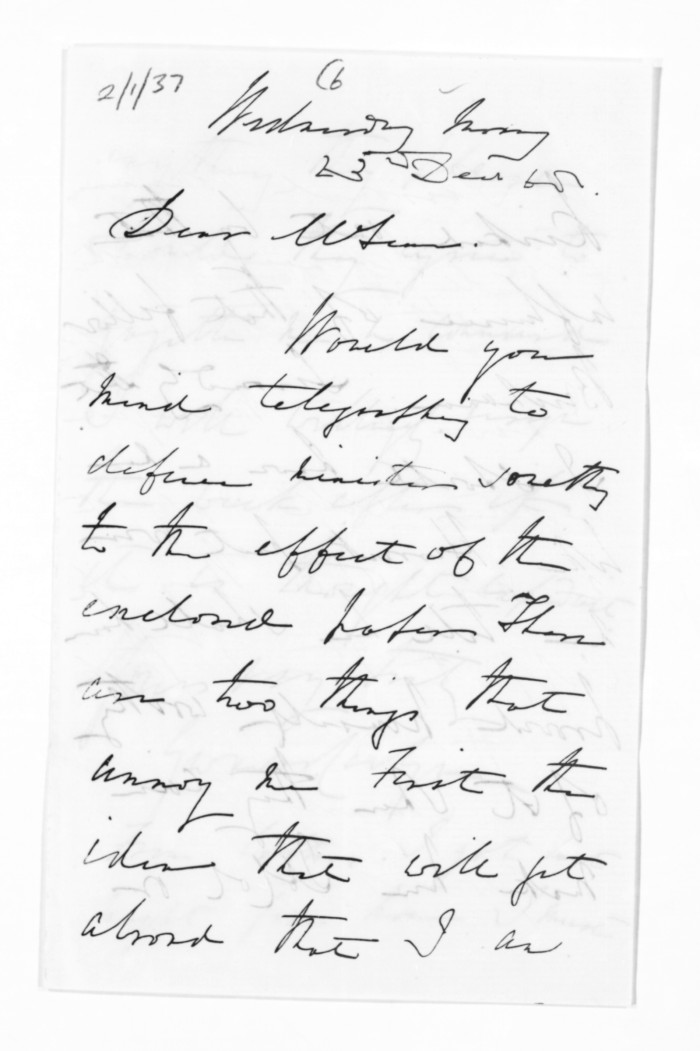 2/1/37
Wednesday Morng
23rd Decr 65.
Dear McLean.
Would you
mind telegraphing to
defence minister somethg
to the effect of the
enclosed papers There
are two things that
annoy me First the
idea that will get
abroad that I am